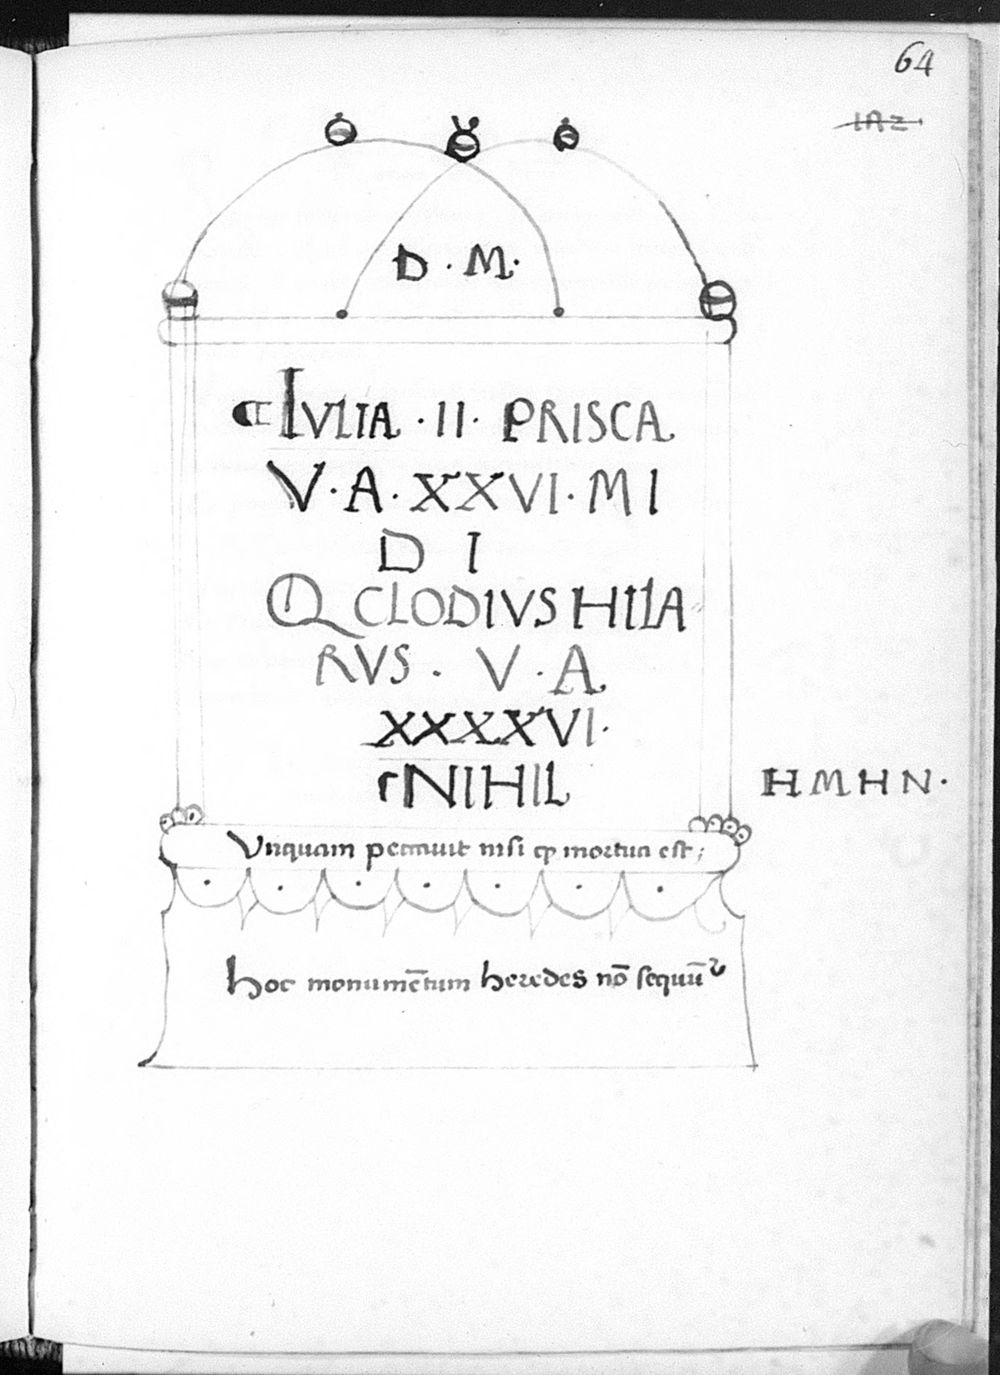 64
D · M ·
IVLIA · II · PRISCA
V · A · XXVI · M I
D I
Q CLODIVS HILA
RVS · V · A
XXXXVI ·
NIHIL
H M H N ·
Vnquam peccauit nisi ꝙ mortua est;
hoc monumētum heredes nō sequūᷣ